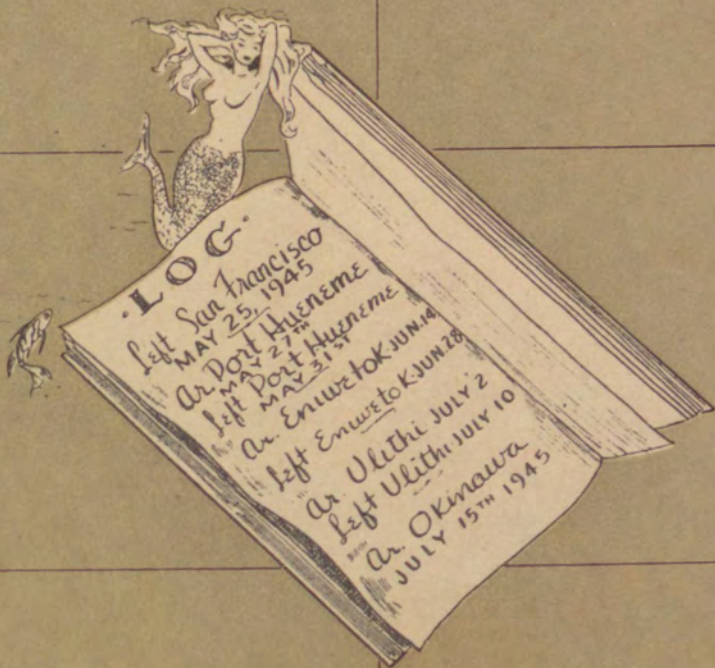 ·LOG·
Left San Francisco
MAY 25, 1945
Ar Port Hueneme
MAY 27TH
Left Port Hueneme
MAY 31ST
Ar. Eniwetok JUN.14
Left Eniwetok JUN.28
Ar Ulithi JULY 2
Left Ulithi JULY 10
Ar. Okinawa
JULY 15TH 1945